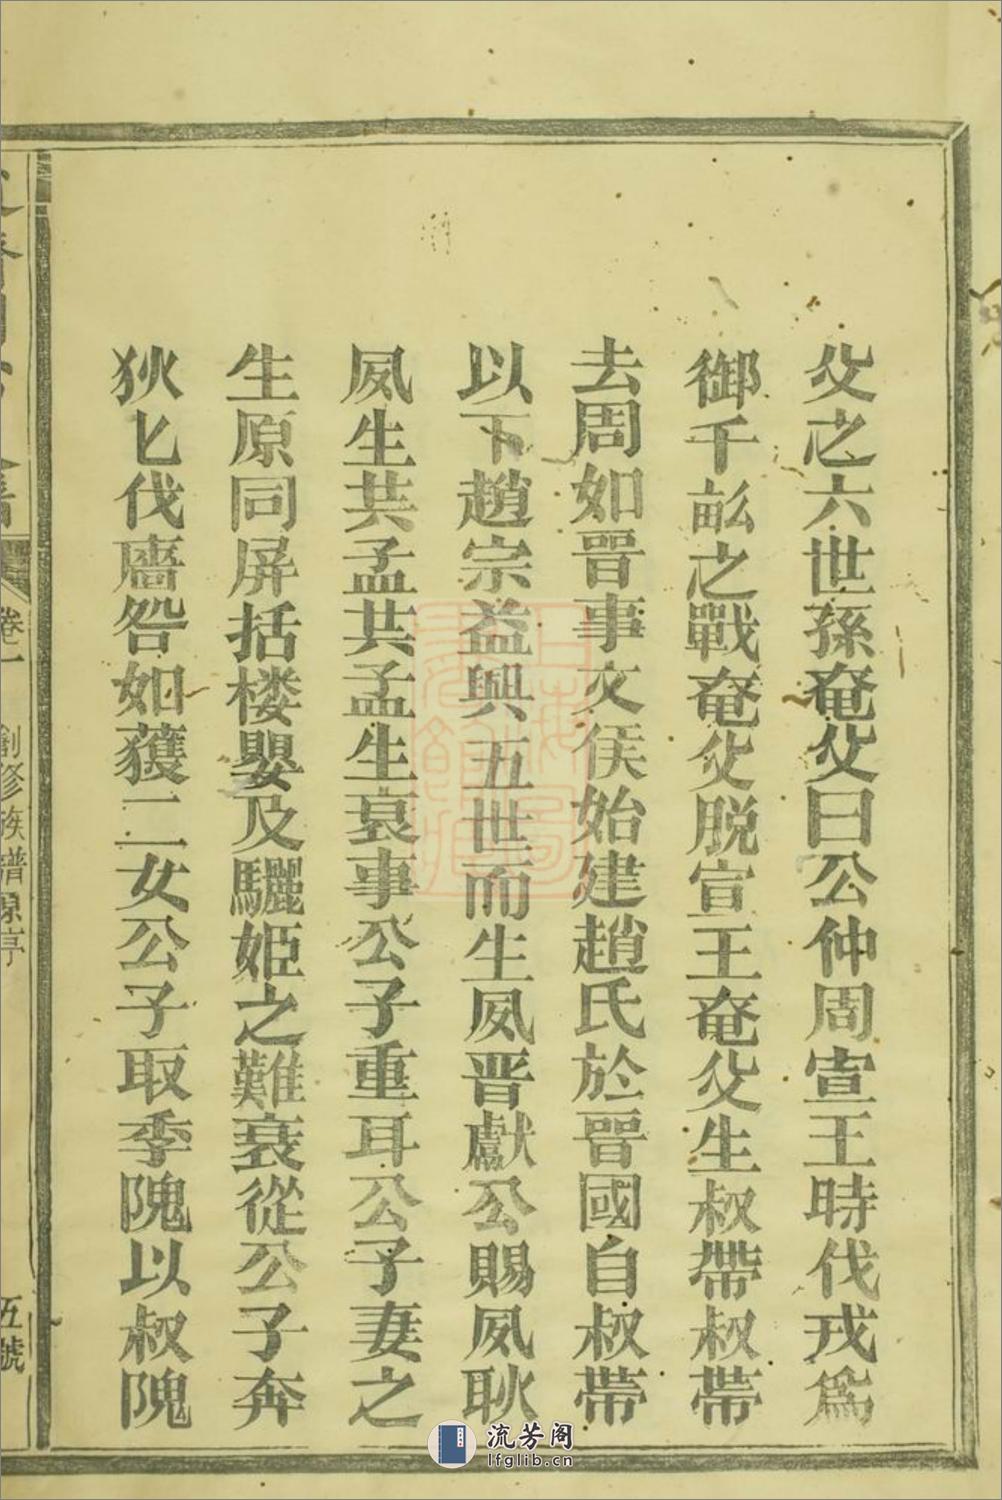 父之六世孫奄父曰公仲周宣王時伐戎為
御千畝之戰奄父脱宣王奄父生叔帶叔帶
去周如晋事文侯始建趙氏於晋國自叔帶
以下趙宗益興五世而生夙晋獻公賜夙耿
夙生共孟共孟生衰事公子重耳公子妻之
生原同屏括楼嬰及驪姬之難衰從公子奔
狄匕伐廧咎如蒦二女公子取季隗以叔隗
卷一
創修族譜原序
五號
流芳阁
lfglib.cn